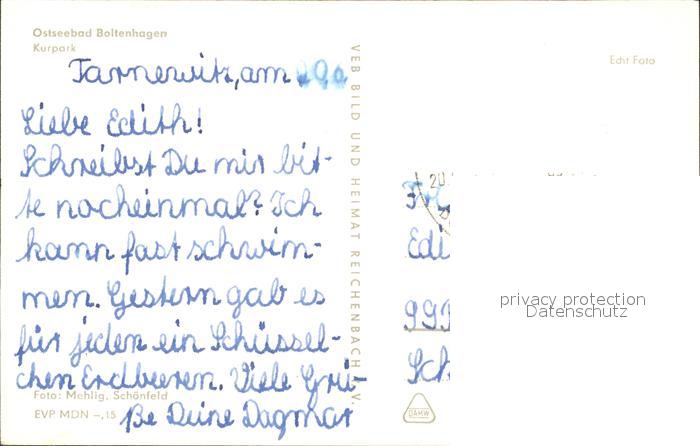 Ostseebad Boltenhagen
Kurpark
Echt Foto
Tarnewitz, am
Liebe Edith!
Schreibst Du mir bit-
te nocheinmal? Ich
kann fast schwim-
men. Gestern gab es
für jeden ein Schüssel-
chen Erdbeeren. Viele Grü-
ße Deine Dagmar
Foto: Mehlig, Schönfeld
EVP MDN –,15
VEB BILD UND HEIMAT REICHENBACH
V.
20.
Edi
991
Sch
DAMW
privacy protection
Datenschutz